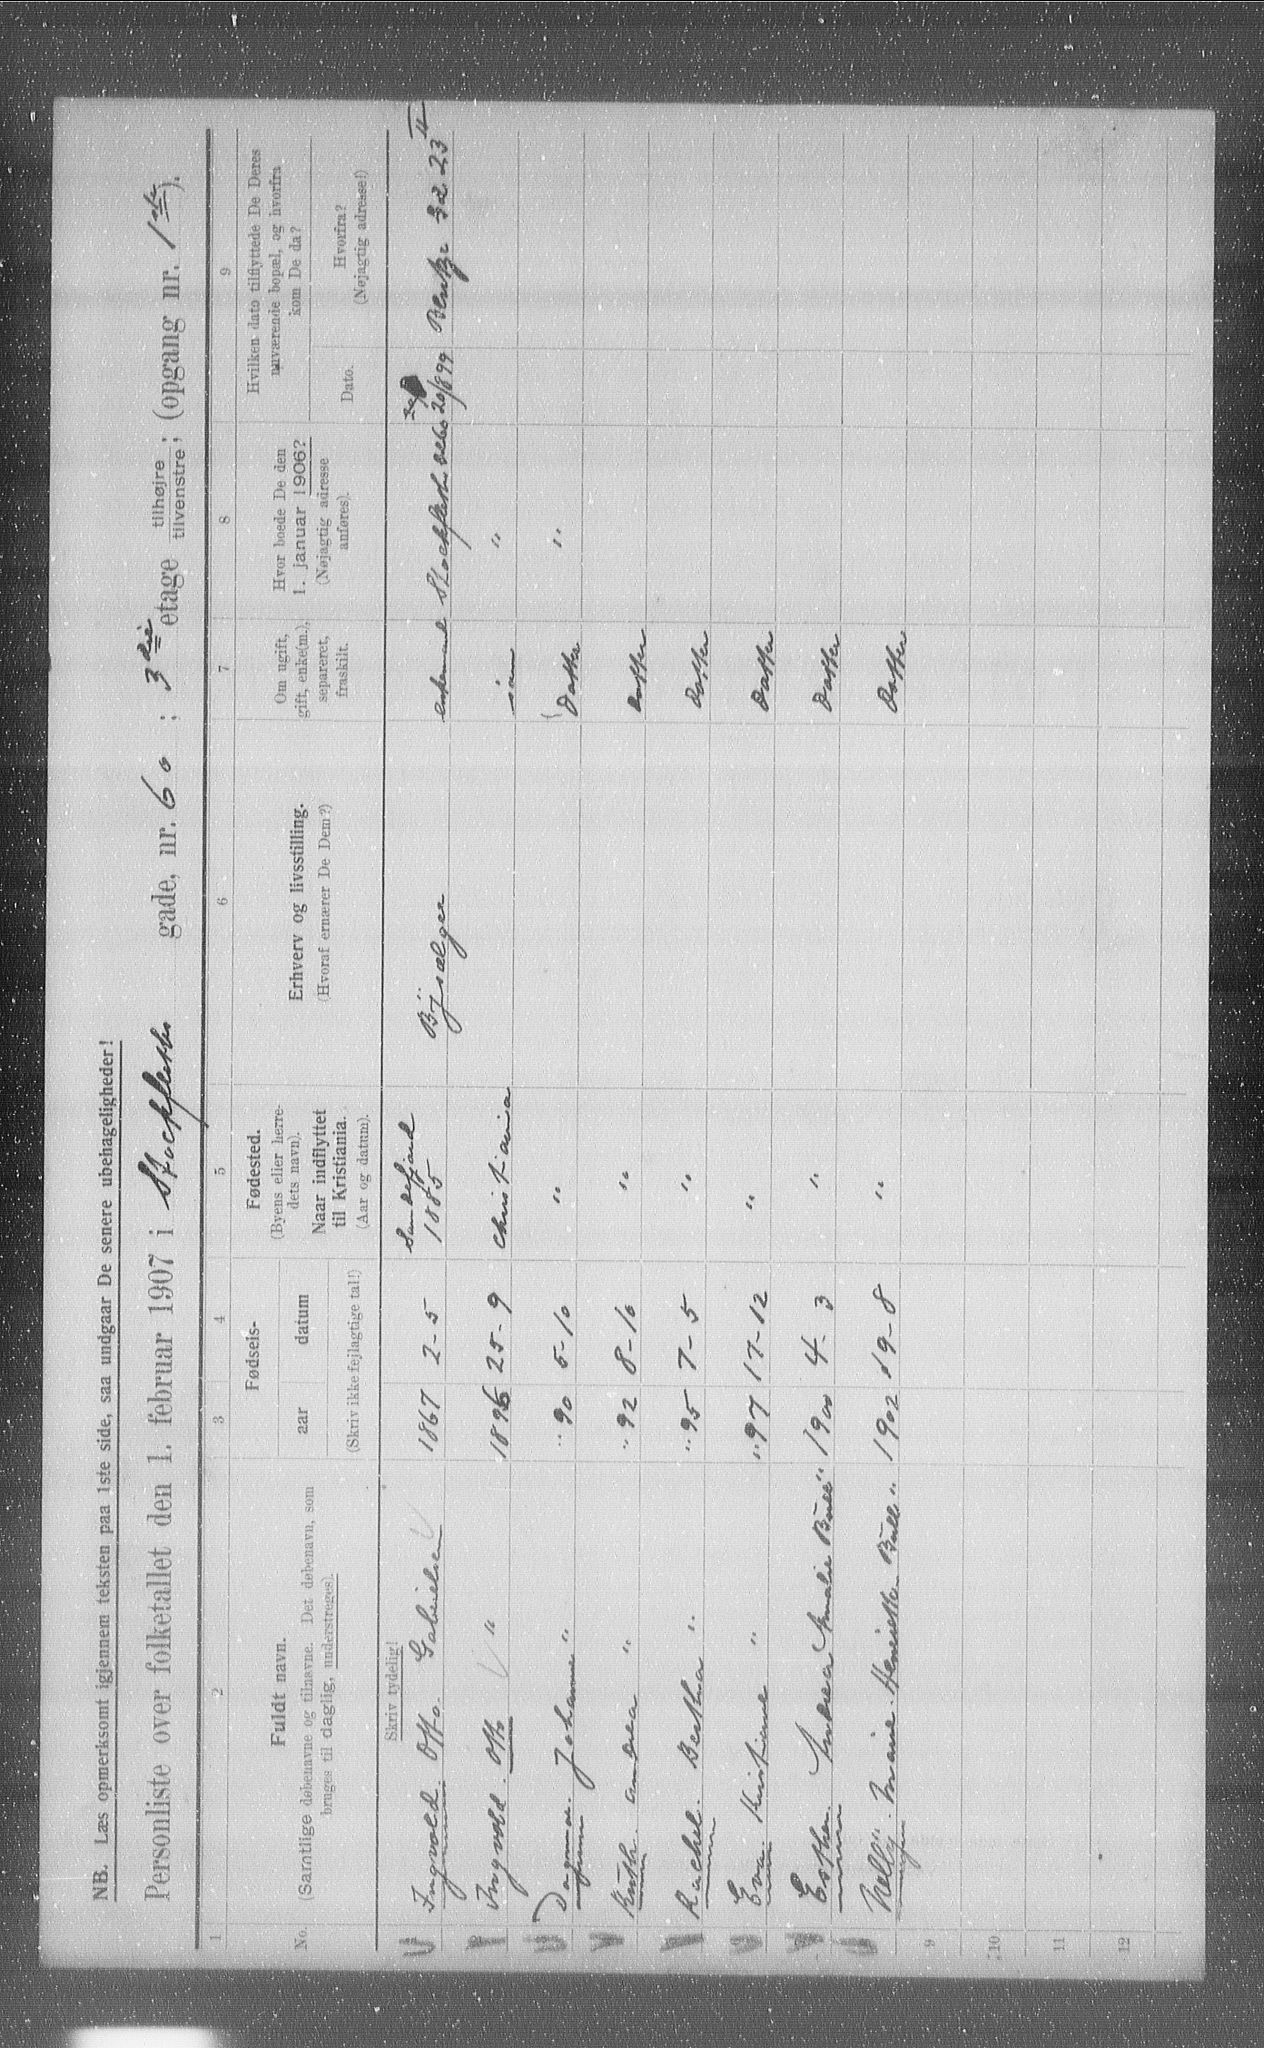 NB. Læs opmerksomt igjennem teksten paa 1ste side, saa undgaar De senere ubehageligheder!
Personliste over folketallet den 1. februar 1907 i Stockfleths gade, nr. 60 ; 3die etage tilhøjre tilvenstre ; (opgang nr. 1ste ).
1 2 3 4 5 6 7 8 9
No.
Fuldt navn.
(Samtlige døbenavne og tilnavne. Det døbenavn, som
bruges til daglig, understreges).
Skriv tydelig!
Fødsels-
aar datum
(Skriv ikke fejlagtige tal!)
Fødested.
(Byens eller herre-
dets navn).
Naar indflyttet
til Kristiania.
(Aar og datum).
Erhverv og livsstilling.
(Hvoraf ernærer De Dem?)
Om ugift,
gift, enke(m.),
separeret,
fraskilt.
Hvor boede De den
1. januar 1906?
(Nøjagtig adresse
anføres).
Hvilken dato tilflyttede De Deres
nuværende bopæl, og hvorfra
kom De da?
Dato.
Hvorfra?
(Nøjagtig adresse!)
Ingvold. Otto. Gabrielsen 1867 2-5 Sandefjord 1885 Byselger enkemand Stockfleth 20/8 99 Bentze 23 II
Ingvold. Otto " 1896 25-9 Christiania søn "
Dagmar. Johanne " " 90 5-10 " Datter "
Ruth. Andrea " " 92 8-10 " Datter
Rachel. Berthea " " 95 7-5 " Datter
Eva. Kristiane " " 97 17-12 " Datter
Esther. Andrea Amalie Bull " 1900 4-3 " Datter
Nelly. Marie. Henriette Bull " 1902 19-8 " Datter
9
10
11
12